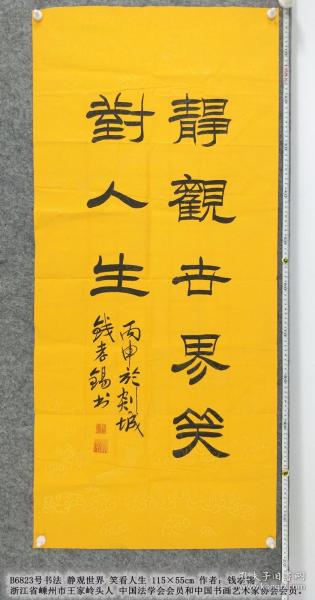 靜觀世界笑
對人生
丙申於剡城
錢孝錫书
B6823号书法 静观世界 笑看人生 115×55cm 作者：钱孝锡
浙江省嵊州市王家岭头人 中国法学会会员和中国书画艺术家协会会员。